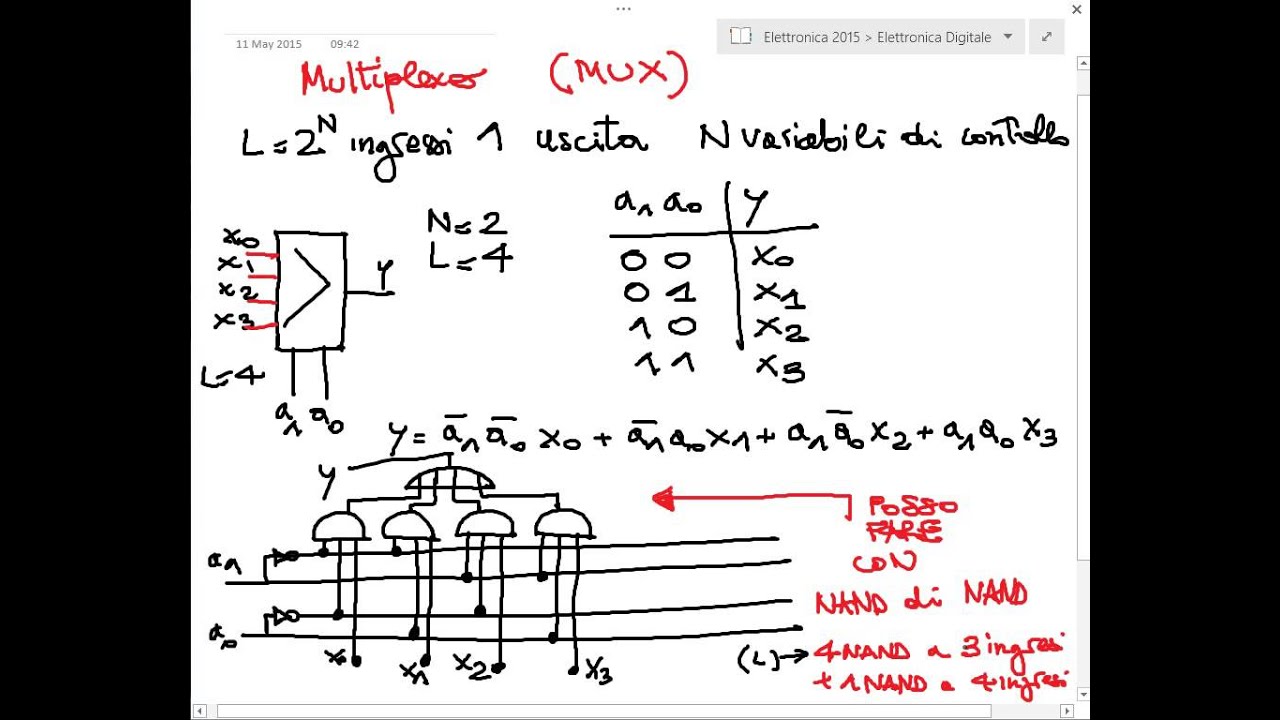 11 May 2015 09:42
Elettronica 2015 > Elettronica Digitale
Multiplexer (MUX)
L=2^N ingressi 1 uscita N variabili di controllo
a1 a0 | y
0 0 x0
0 1 x1
1 0 x2
1 1 x3
N=2
L=4
x0
x1
x2
x3
y
L=4
a1 a0
y = a̅1 a̅0 x0 + a̅1 a0 x1 + a1 a̅0 x2 + a1 a0 x3
y
a1
a0
x0 x1 x2 x3
POSSO
FARE
CON
NAND di NAND
(L) → 4 NAND a 3 ingressi
+ 1 NAND a 4 ingressi